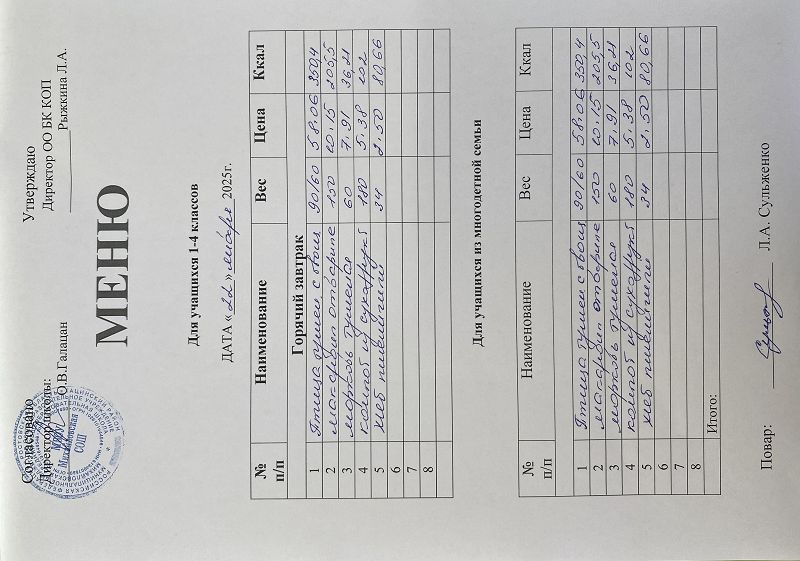 Согласовано
Директор школы:
О.В.Галацан
Утверждаю
Директор ОО БК КОП
Рыжкина Л.А.
МЕНЮ
Для учащихся 1-4 классов
ДАТА « 22 » января 2025г.
№ п/п Наименование Вес Цена Ккал
Горячий завтрак
1 Птица тушен с овощ 90/60 58.06 350,4
2 макароны отварные 150 10.15 205,5
3 морковь тушеная 60 7.91 36,21
4 компот из сухофрукт 180 5.38 102
5 хлеб пшеничный 34 2.50 80,66
6
7
8
Для учащихся из многодетной семьи
№ п/п Наименование Вес Цена Ккал
1 Птица тушен с овощ 90/60 58.06 350,4
2 макароны отварные 150 10.15 205,5
3 морковь тушеная 60 7.91 36,21
4 компот из сухофрукт 180 5.38 102
5 хлеб пшеничный 34 2.50 80,66
6
7
8
Итого:
Повар: Л.А. Сульженко